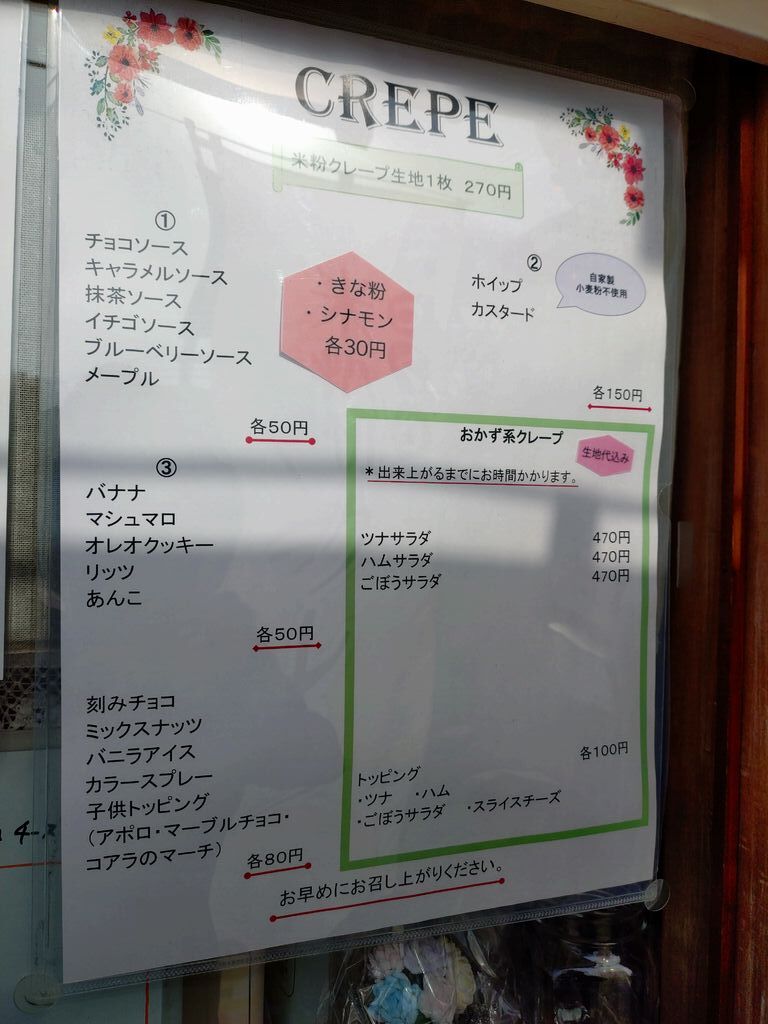 CREPE
米粉クレープ生地1枚 270円
①
チョコソース
キャラメルソース
抹茶ソース
イチゴソース
ブルーベリーソース
メープル
各50円
・きな粉
・シナモン
各30円
②
ホイップ
カスタード
自家製
小麦粉不使用
各150円
③
バナナ
マシュマロ
オレオクッキー
リッツ
あんこ
各50円
刻みチョコ
ミックスナッツ
バニラアイス
カラースプレー
子供トッピング
（アポロ・マーブルチョコ・
コアラのマーチ）
各80円
おかず系クレープ
生地代込み
＊出来上がるまでにお時間かかります。
ツナサラダ 470円
ハムサラダ 470円
ごぼうサラダ 470円
各100円
トッピング
・ツナ ・ハム
・ごぼうサラダ ・スライスチーズ
お早めにお召し上がりください。